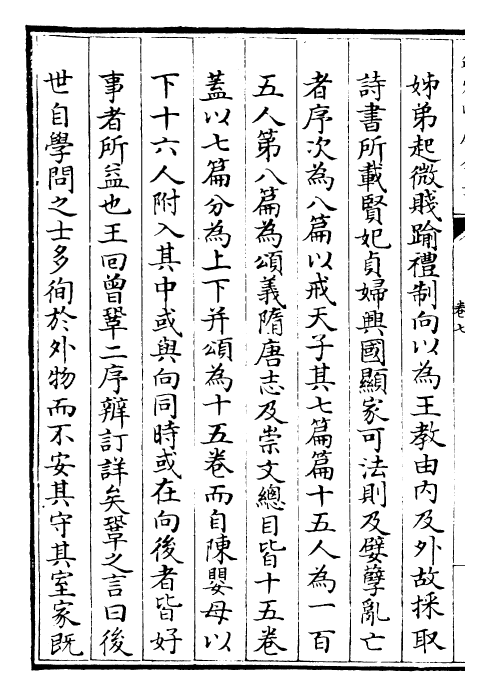 卷七
姊弟起微賤踰禮制向以為王教由内及外故採取
詩書所載賢妃貞婦興國顯家可法則及嬖孽亂亡
者序次為八篇以戒天子其七篇篇十五人為一百
五人第八篇為頌義隋唐志及崇文總目皆十五卷
蓋以七篇分為上下并頌為十五卷而自陳嬰母以
下十六人附入其中或與向同時或在向後者皆好
事者所益也王回曾鞏二序辨訂詳矣鞏之言曰後
世自學問之士多徇於外物而不安其守其室家既